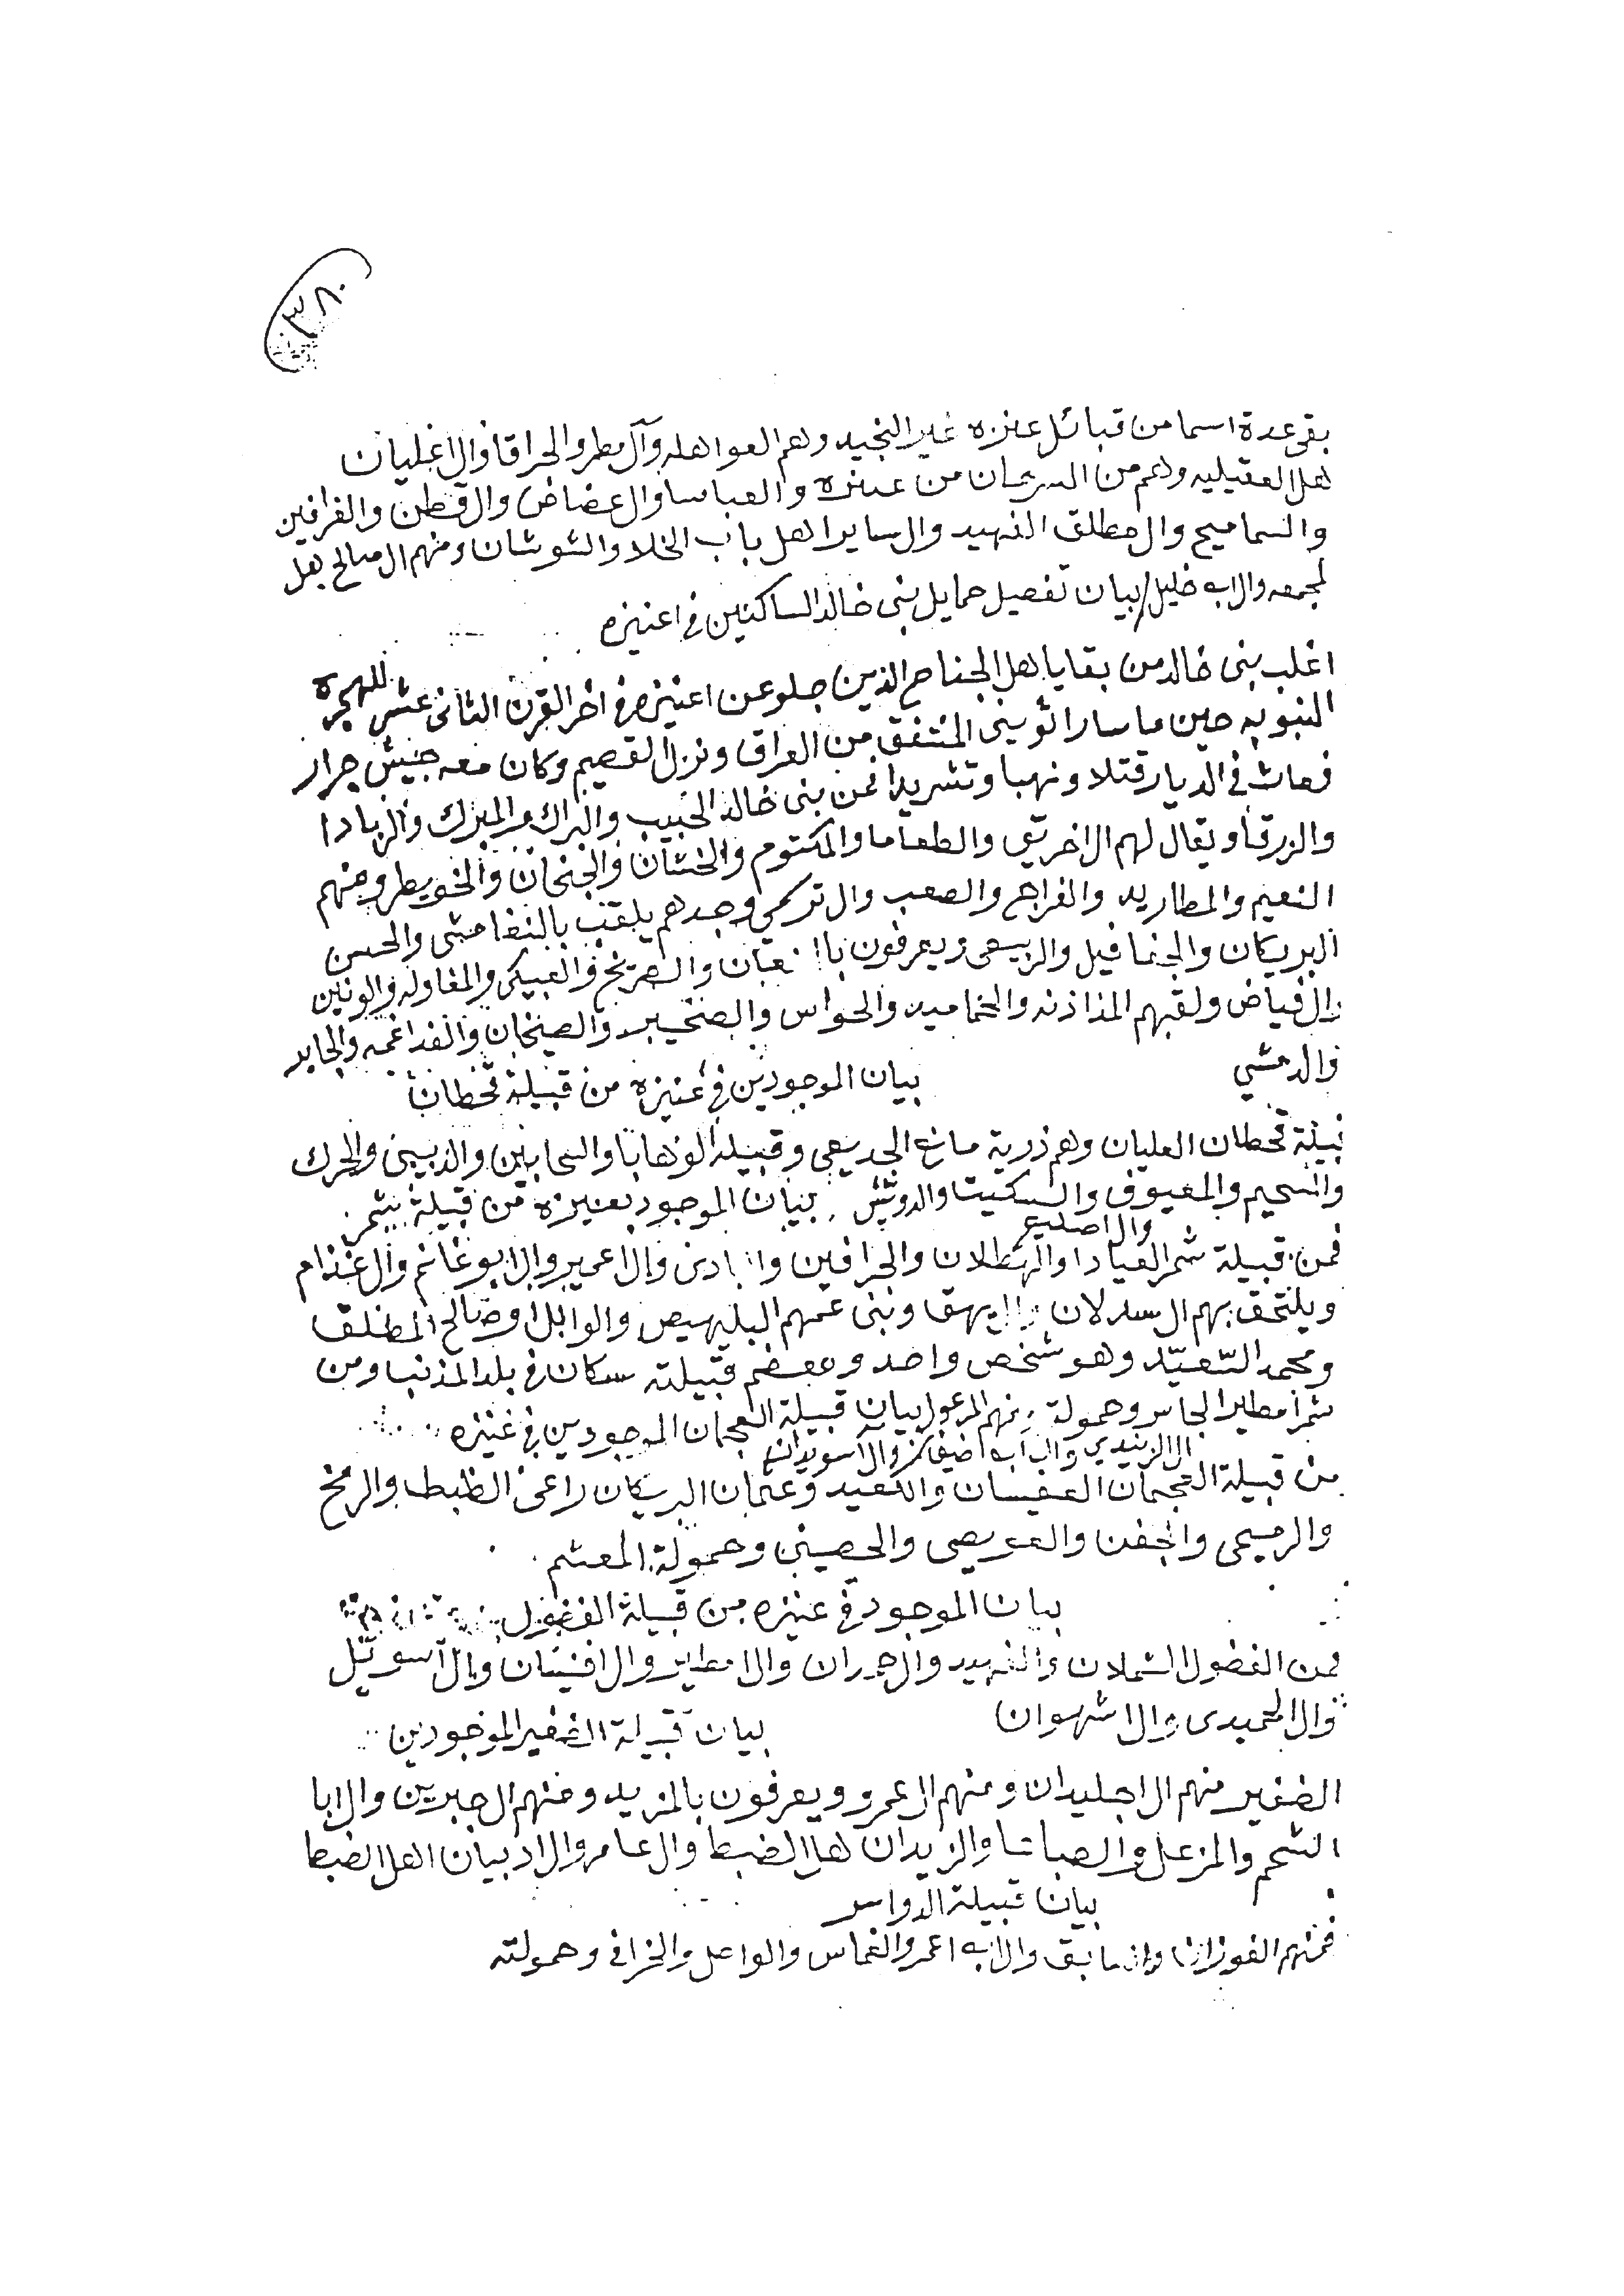 ٣٨٠
بقي عدة اسما من قبائل عنزه غير النجيد وهم العواهله وآل مطر والحراقا وال اغليان
هل العقيليه وهم من السرحان من عنزه والعباسا وال عضاض وال قطن والفرافين
والسماميح وال مطلق الفهيد وال سايرا هل باب الخلا والشوشان ومنهم ال صالح هل
لمجمعه وال ابه خليل / بيان تفصيل حمايل بني خالد الساكنين في اعنيزه
اغلب بني خالد من بقايا هل الجناح الذين جلو عن اعنيزه في اخر القرن الثاني عشر للهجره
النبويه حين ما سارا ثويني المنتفق من العراق ونزل القصيم وكان معه جيش جرار
فعاث في الديار قتلا ونهبا وتشريدا فمن بني خالد الخبيب والبراك والمبرك والزبادا
والزرقا ويقال لهم ال اخريق والطعاما والمكتوم والخشان والجنحان والخويطر ومنهم
النعيم والمطاريد والفراج والصعب وال تركي وجدهم يلقب بالنغامشي والحسن
البريكان والجفافيل والربيعي ويعرفون با والصريخ والعبيكي والمغاوله والونين
وال فياض ولقبهم المذاذنه والحماميد والحواس والصخيبر والصيخان والفداغمه والجابر
والدمشي
بيان الموجودين في عنيزه من قبيلة قحطان
قبيلة قحطان العليان وهم ذرية مانع الجديعي وقبيلة الوهابا والسحابين والدبيبي والحرك
والسحيم والمعيوف والسكيت والدويش . بيان الموجود بعنيزه من قبيلة شمر
وال اصليع
فمن قبيلة شمر العبادا والهطلان والجرافين وال اعمير وال ابو غانم وال غنام
ويلتحق بهم ال سدلان وبني عمهم البليهيص والوابل او صالح المطلق
ومحمد السعيد وهو شخص واحد ومعضم قبيلته سكان في بلد المذنب ومن
شمر امطير الجاسر وحمولة منهم المرعول بيان قبيلة العجمان الموجودين في عنيزه
ال الزنيدي وال ابه اضيفكر وال اسويدان
من قبيلة العجمان العفيسان والقعيد وعثمان البريكان راعي الظبط والرمح
والرميحي والجفن والعريصي والحصيني وحمولة المعثم
بيان الموجود في عنيزه من قبيلة الفضول
فمن الفضول الشملان والفهيد وال جدران وال امطير وال افنيتان وال اسويل
وال الحميدي وال اشهوان
بيان قبيلة الضفير الموجودين
الضفير منهم ال اجليدان ومنهم ال عمرو ويعرفون بالمزيد ومنهم ال جبرين وال ابا
الشحم والمزعل والصباتا والزيدان هل الضبط وال عامر وال ادبيان اهل الضبط
بيان قبيلة الدواسر
فمنهم الفوزان والسابق وال ابه اعمر والغماس والواصل والخرافي وحمولته